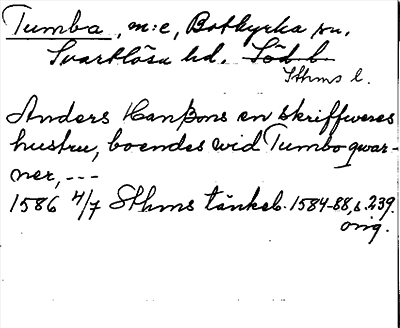 Tumba, m:e, Botkyrka sn.
Svartlösa hd. Söd l.
Sthms l.
Anders Hanßons en skriffweres
hustru, boendes wid Tumbo qwar-
ner, ---
1586 4/7 Sthms tänkeb. 1584-88, s. 239.
orig.